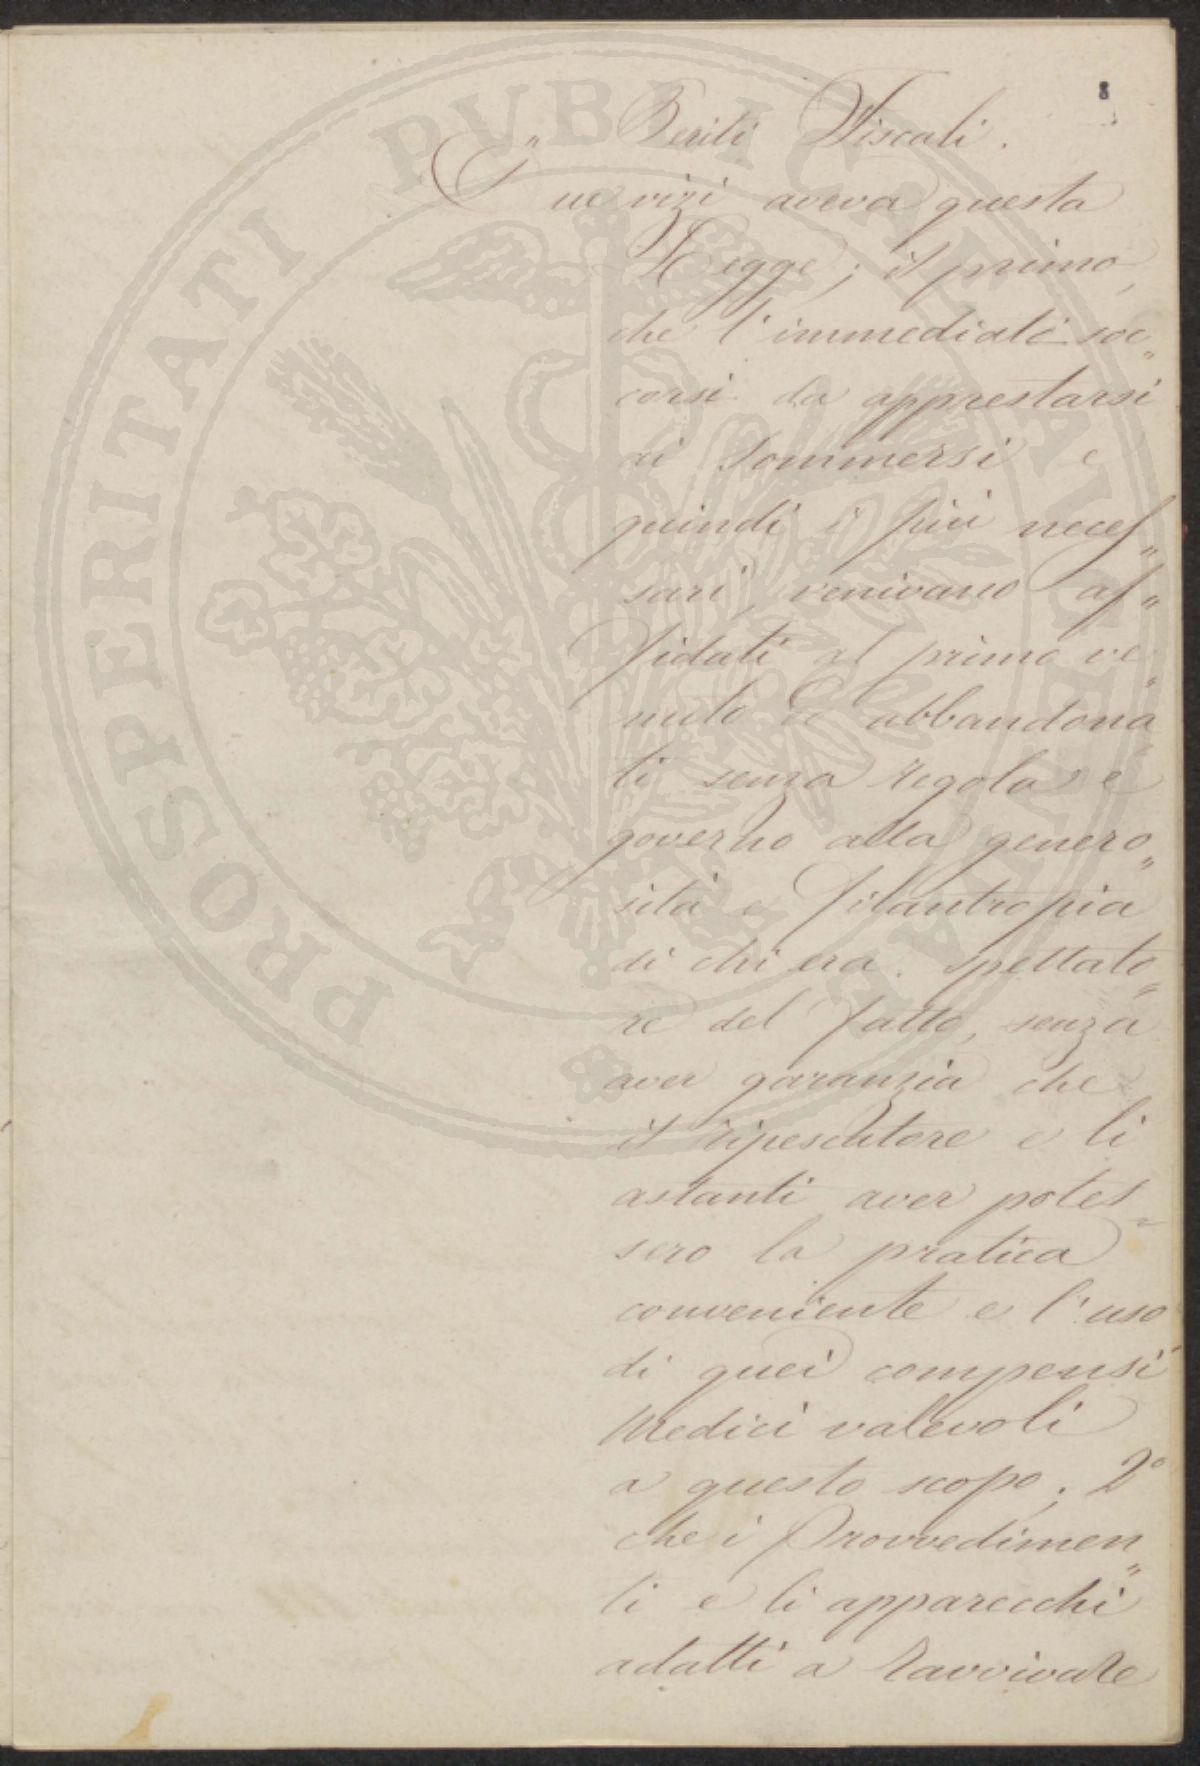 8
Periti Fiscali.
Due vizi aveva questa
Legge; il primo,
che l'immediati soc„
corsi da apprestarsi
ai Sommersi e
quindi i più neces„
sari, venivano af„
fidati al primo ve„
nuto e abbandona„
ti senza regola e
governo alla genero„
sità e filantropia
di chi era spettato„
re del fatto, senza
aver garanzia che
il ripescatore e li
astanti aver potes„
sero la pratica
conveniente e l'uso
di quei compensi
Medici valevoli
a questo scopo; 2°
che i Provvedimen„
ti e li apparecchi
adatti a ravvivare
PROSPERITATI PUBLICAE AUGENDAE